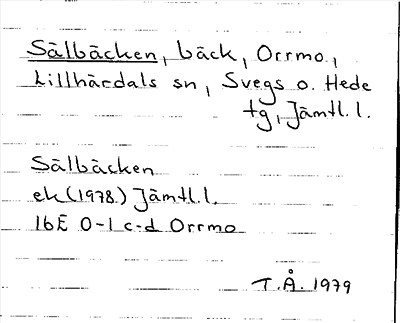 Sälbäcken, bäck, Orrmo,
Lillhärdals sn, Svegs o. Hede
tg, Jämtl. l.
Sälbäcken
ek (1978) Jämtl. l.
16E 0-1 c-d Orrmo
T.Å. 1979